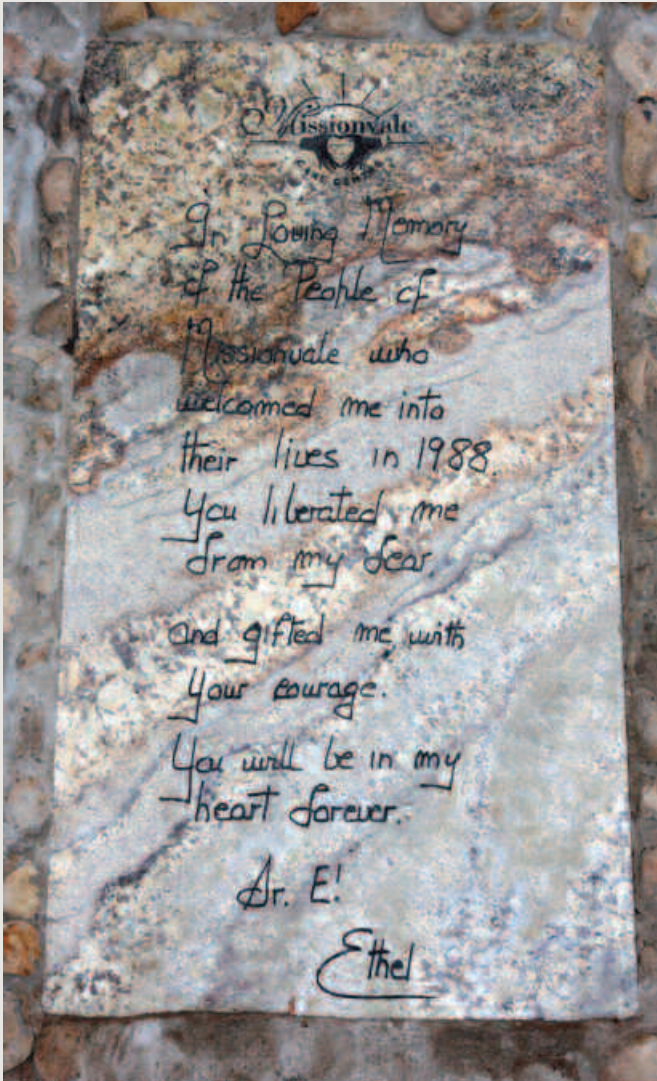 Missionvale
CARE CENTRE
In Loving Memory
of the People of
Missionvale who
welcomed me into
their lives in 1988.
You liberated me
from my fear
and gifted me with
your courage.
You will be in my
heart forever.
Sr. E!
Ethel